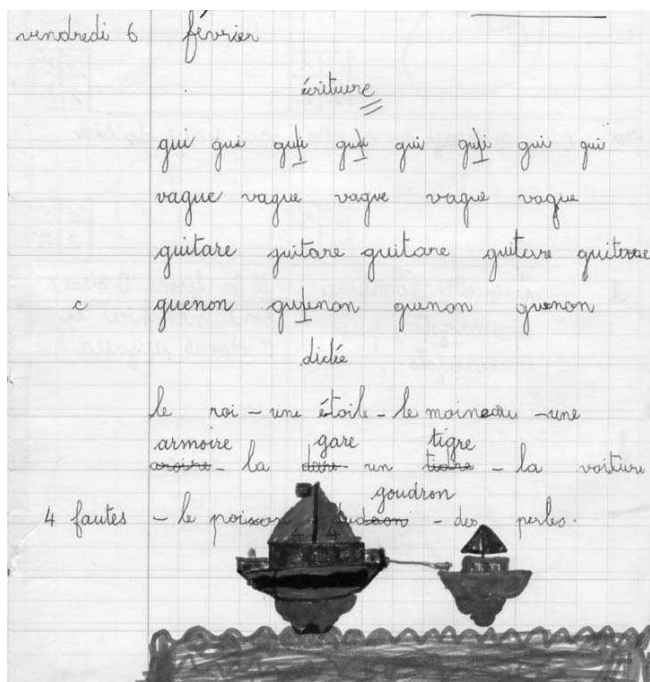 vendredi 6 février
écriture
gui gui gui gui gui gui gui gui
vague vague vague vague vague
guitare guitare guitare guitare guitare
c guenon guenon guenon guenon
dictée
le roi - une étoile - le moineau - une
armoire gare tigre
aroire - la dare un tidre - la voiture
goudron
4 fautes - le poisson - des perles.